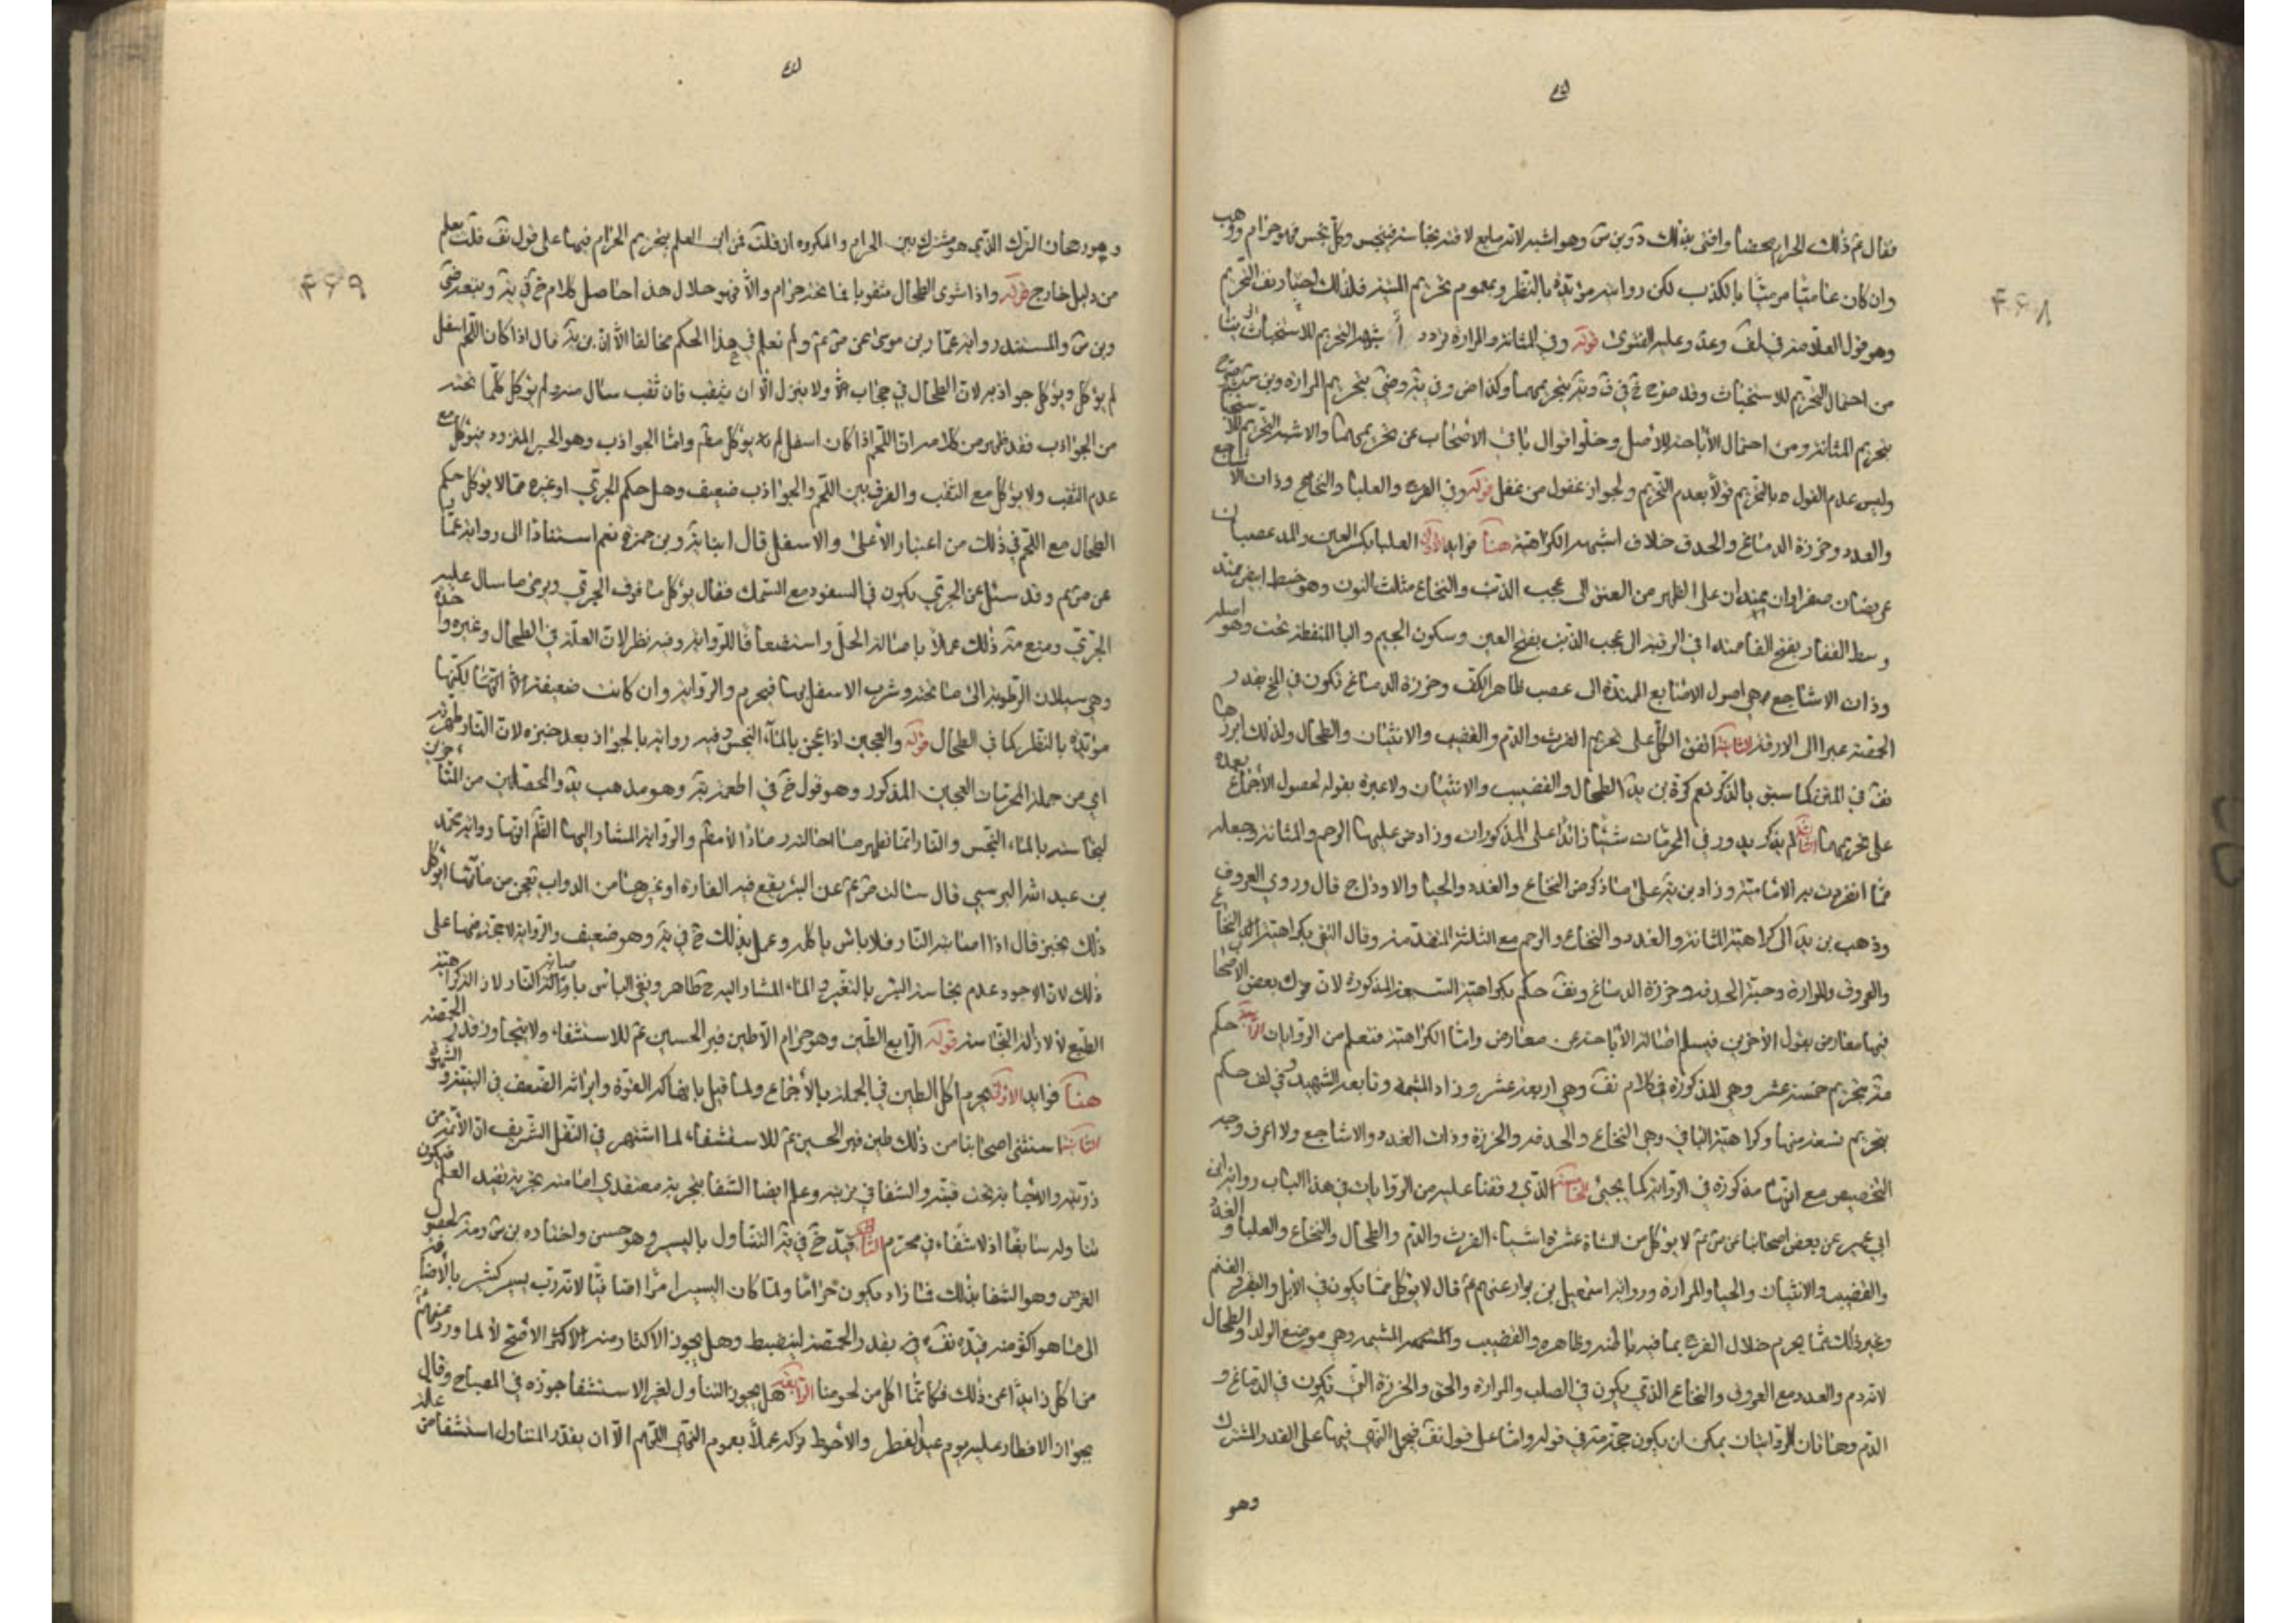 فقال ع ذلك الحرام محضا وافتى بذلك وبن س وهو اشبه لانه مايع لاقته نجاسة فينجس وكل نجس فهو حرام ووهب
وان كان عاميا مرميا بالكذب لكن روايته مؤيدة بالنظر وبعموم تحريم الميتة فلذلك اختار نف التحريم
وهو قول العلامة في لف وعد وعليه الفتوى قوله وفي المثانة والمرارة تردد اشبهه التحريم للاستخباث
من احتمال التحريم للاستخباث وقد صرح خ في ف وية بتحريمهما وكذا ض وفي ية وضى بتحريم المرارة وبن
بتحريم المثانة ومن احتمال الاباحة للاصل وخلو اقوال باقي الاصحاب عن تحريمهما والاشبه التحريم
وليس عدم القول بالتحريم قولا بعدم التحريم ولجواز غفول من غفل قوله وفي الفرج والعلبا والنخاع وذات الاشاجع
والغدد وخرزة الدماغ والحدق خلاف اشبهه الكراهية هنا فوايد الاولى العلبا بكسر العين والمد عصبان
عريضان صفراوان يمتدان على الظهر من العنق الى عجب الذنب والنخاع مثلث النون وهو خيط ابيض يمتد
وسط الفقار بفتح الفا ممتدا في الرقبة الى عجب الذنب بفتح العين وسكون الجيم والبا المنقطة تحت وهو اصله
وذات الاشاجع وهي اصول الاصابع الممتدة الى عصب ظاهر الكف وخرزة الدماغ تكون في المخ بقدر
الحمصة غبرا الى الزرقة الثانية اتفق الكل على تحريم الفرث والدم والقضيب والانثيان والطحال ولذلك ابرزها
نف في المتن كما سبق بالذكر نعم كره بن يد الطحال والقضيب والانثيان ولا عبرة بقوله لحصول الاجماع بعده
على تحريمها الثالثة لم يذكر يد ور في المحرمات شيئا زائدا على المذكورات وزاد ض عليهما الرحم والمثانة وجعله
مما انفردت به الامامية وزاد بن ية على ما ذكر ض النخاع والغدد والحيا والاوداج قال وروي العروق
وذهب بن يد الى كراهية المثانة والغدد والنخاع والرحم مع الثلثة المتقدمة وقال التقي بكراهية النخاع
والعروق والمرارة وحبة الحدقة وخرزة الدماغ ونف حكم بكراهية التسعة المذكورة لان ترك بعض الاصحاب
فيها معارض بقول الاخرين فيسلم اصالة الاباحة عن معارض واما الكراهية فتعلم من الروايات الرابعة حكم
مة بتحريم خمسة عشر وهي المذكورة في كلام نف وهي اربعة عشر وزاد المشيمة وتابعه الشهيد وفي لف حكم
بتحريم تسعة منها وكراهية الباقي وهي النخاع والحدقة والخرزة وذات الغدد والاشاجع ولا اعرف وجه
التخصيص مع انها مذكورة في الرواية كما يجيئ الخامسة الذي وقفنا عليه من الروايات في هذا الباب رواية ابن
ابي عمير عن بعض اصحابنا عن ص ع لا يؤكل من الشاة عشرة اشيا، الفرث والدم والطحال والنخاع والعلبا والغدد
والقضيب والانثيان والحيا والمرارة ورواية اسمعيل بن مرار عنهم ع قال لا يؤكل مما يكون في الابل والبقر والغنم
وغير ذلك مما يحرم حلال الفرج بما فيه باطنه وظاهره والقضيب والبيضتان والمشيمة وهي موضع الولد والطحال
لانه دم والغدد مع العروق والنخاع الذي يكون في الصلب والمرارة والحدق والخرزة التي تكون في الدماغ و
الدم وهاتان الروايتان يمكن ان يكون حجة مة في قوله واما على قول نف فيحمل النهي فيها على القدر المشترك
وهو
وهو رجحان الترك الذي هو مشترك بين الحرام والمكروه ان قلت فمن اين العلم بتحريم الحرام فيهما على قول نف قلت يعلم
من دليل خارج قوله واذا شوى الطحال مثقوبا فما تحته حرام والا فهو حلال هذا حاصل كلام خ في ية وتبعه ضى
وبن س والمستند رواية عمار بن موسى عن ص ع ولم نعلم في هذا الحكم مخالفا الا ان بن ية قال اذا كان اللحم اسفل
لم يؤكل ويؤكل جواذبه لان الطحال في حجاب ولا ينزل الا ان يثقب فان ثقب سال منه ولم يؤكل كلما تحته
من الجواذب فقد ظهر من كلامه ان اللحم اذا كان اسفل لم يؤكل مط واما الجواذب وهو الخبز المثرود فيؤكل مع
عدم الثقب ولا يؤكل مع الثقب والفرق بين اللحم والجواذب ضعيف وهل حكم الجري او غيره مما لا يؤكل حكم
الطحال مع اللحم في ذلك من اعتبار الاعلى والاسفل قال ابنا ية وبن حمزة نعم استنادا الى رواية عمار
عن ص ع وقد سئل عن الجري يكون في السفود مع السمك فقال يؤكل ما فوق الجري ويرمى ما سال عليه
الجري ومنع مة ذلك عملا باصالة الحل واستضعافا للرواية وفيه نظر لان العلة في الطحال وغيره واحدة
وهي سيلان الرطوبة الى ما تحته وشرب الاسفل لها فيحرم والرواية وان كانت ضعيفة الا انها لكنها
مؤيدة بالنظر كما في الطحال قوله والعجين اذا عجن بالماء النجس وفيه رواية بالجواز بعد خبزه لان النار طهرته
اي من جملة المحرمات العجين المذكور وهو قول خ في اطعمة ية وهو مذهب يد والمحصلين من المتأخرين
لنجاسته بالماء النجس والنار انما تطهر ما احالته رمادا لا مط والرواية المشار اليها القلم انها رواية محمد
بن عبد الله الزبيري قال سألت ص ع عن البئر يقع فيه الفارة او غيرها من الدواب فيموت فيعجن من مائها ايؤكل
ذلك الخبز قال اذا اصابته النار فلا باس باكله وعمل بذلك خ في ية وهو ضعيف والرواية لا حجة فيها على
ذلك لان الاجود عدم نجاسة البئر بالتغير والماء المشار اليه ح طاهر ونفي البأس باصابة النار لازالة كراهية
الطبع لا لازالة النجاسة قوله الرابع الطين وهو حرام الا طين قبر الحسين ع للاستشفاء ولا يتجاوز قدر الحمصة
هنا فوايد الاولى يحرم اكل الطين في الجملة بالاجماع ولما قيل بانهاكه القوة وايراثه الضعف في البنية والشهوة
الثانية استثنى اصحابنا من ذلك طين قبر الحسين ع للاستشفاء لما اشتهر في النقل الشريف ان الائمة من
ذريته والاجابة تحت قبته والشفا في تربته وعلم ايضا الشفا بتجربة معتقدي امامته تجربة تفيد العلم فيكون
تناوله سايغا اذ لا شفاء في محرم الثالثة قيد خ في ية التناول باليسير وهو حسن واختاره بن س ومة لحصول
الغرض وهو الشفا بذلك فما زاد يكون حراما ولما كان اليسير امرا اضافيا لانه رب يسير كثير بالاضافة
الى ما هو اكثر منه قيده نف ق بقدر الحمصة لينضبط وهل يجوز الاكثار منه الاكثر الاصح لا لما ورد عنهم ع
من اكل زايدا عن ذلك فكانما اكل من لحومنا الرابعة هل يجوز التناول لغير الاستشفا جوزه في المصباح وقال
بجواز الافطار عليه يوم عيد الفطر والاحوط تركه عملا بعموم النهي اللهم الا ان يقدر المتناول استشفا من علة